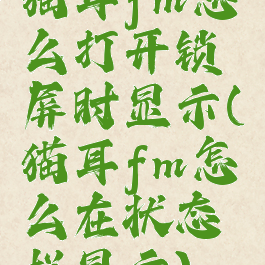 猫耳fm怎
么打开锁
屏时显示(
猫耳fm怎
么在状态
栏显示)